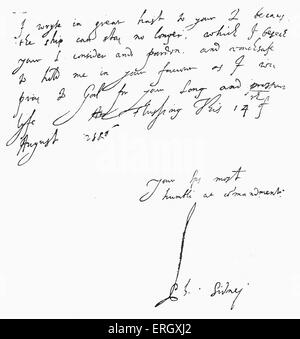 I wryte in great hast to your L becaws
the ship can stay no longer. which I beseech
your L consider and pardon. and vowchsafe
to hold me in your favour as I wil
pray to God for your Long and prosperous
life. At Flushing this 14th
August 1586
your Ls most
humble at commandment
Ph. Sidnei
alamy
alamy
ERGXJ2
www.alamy.com